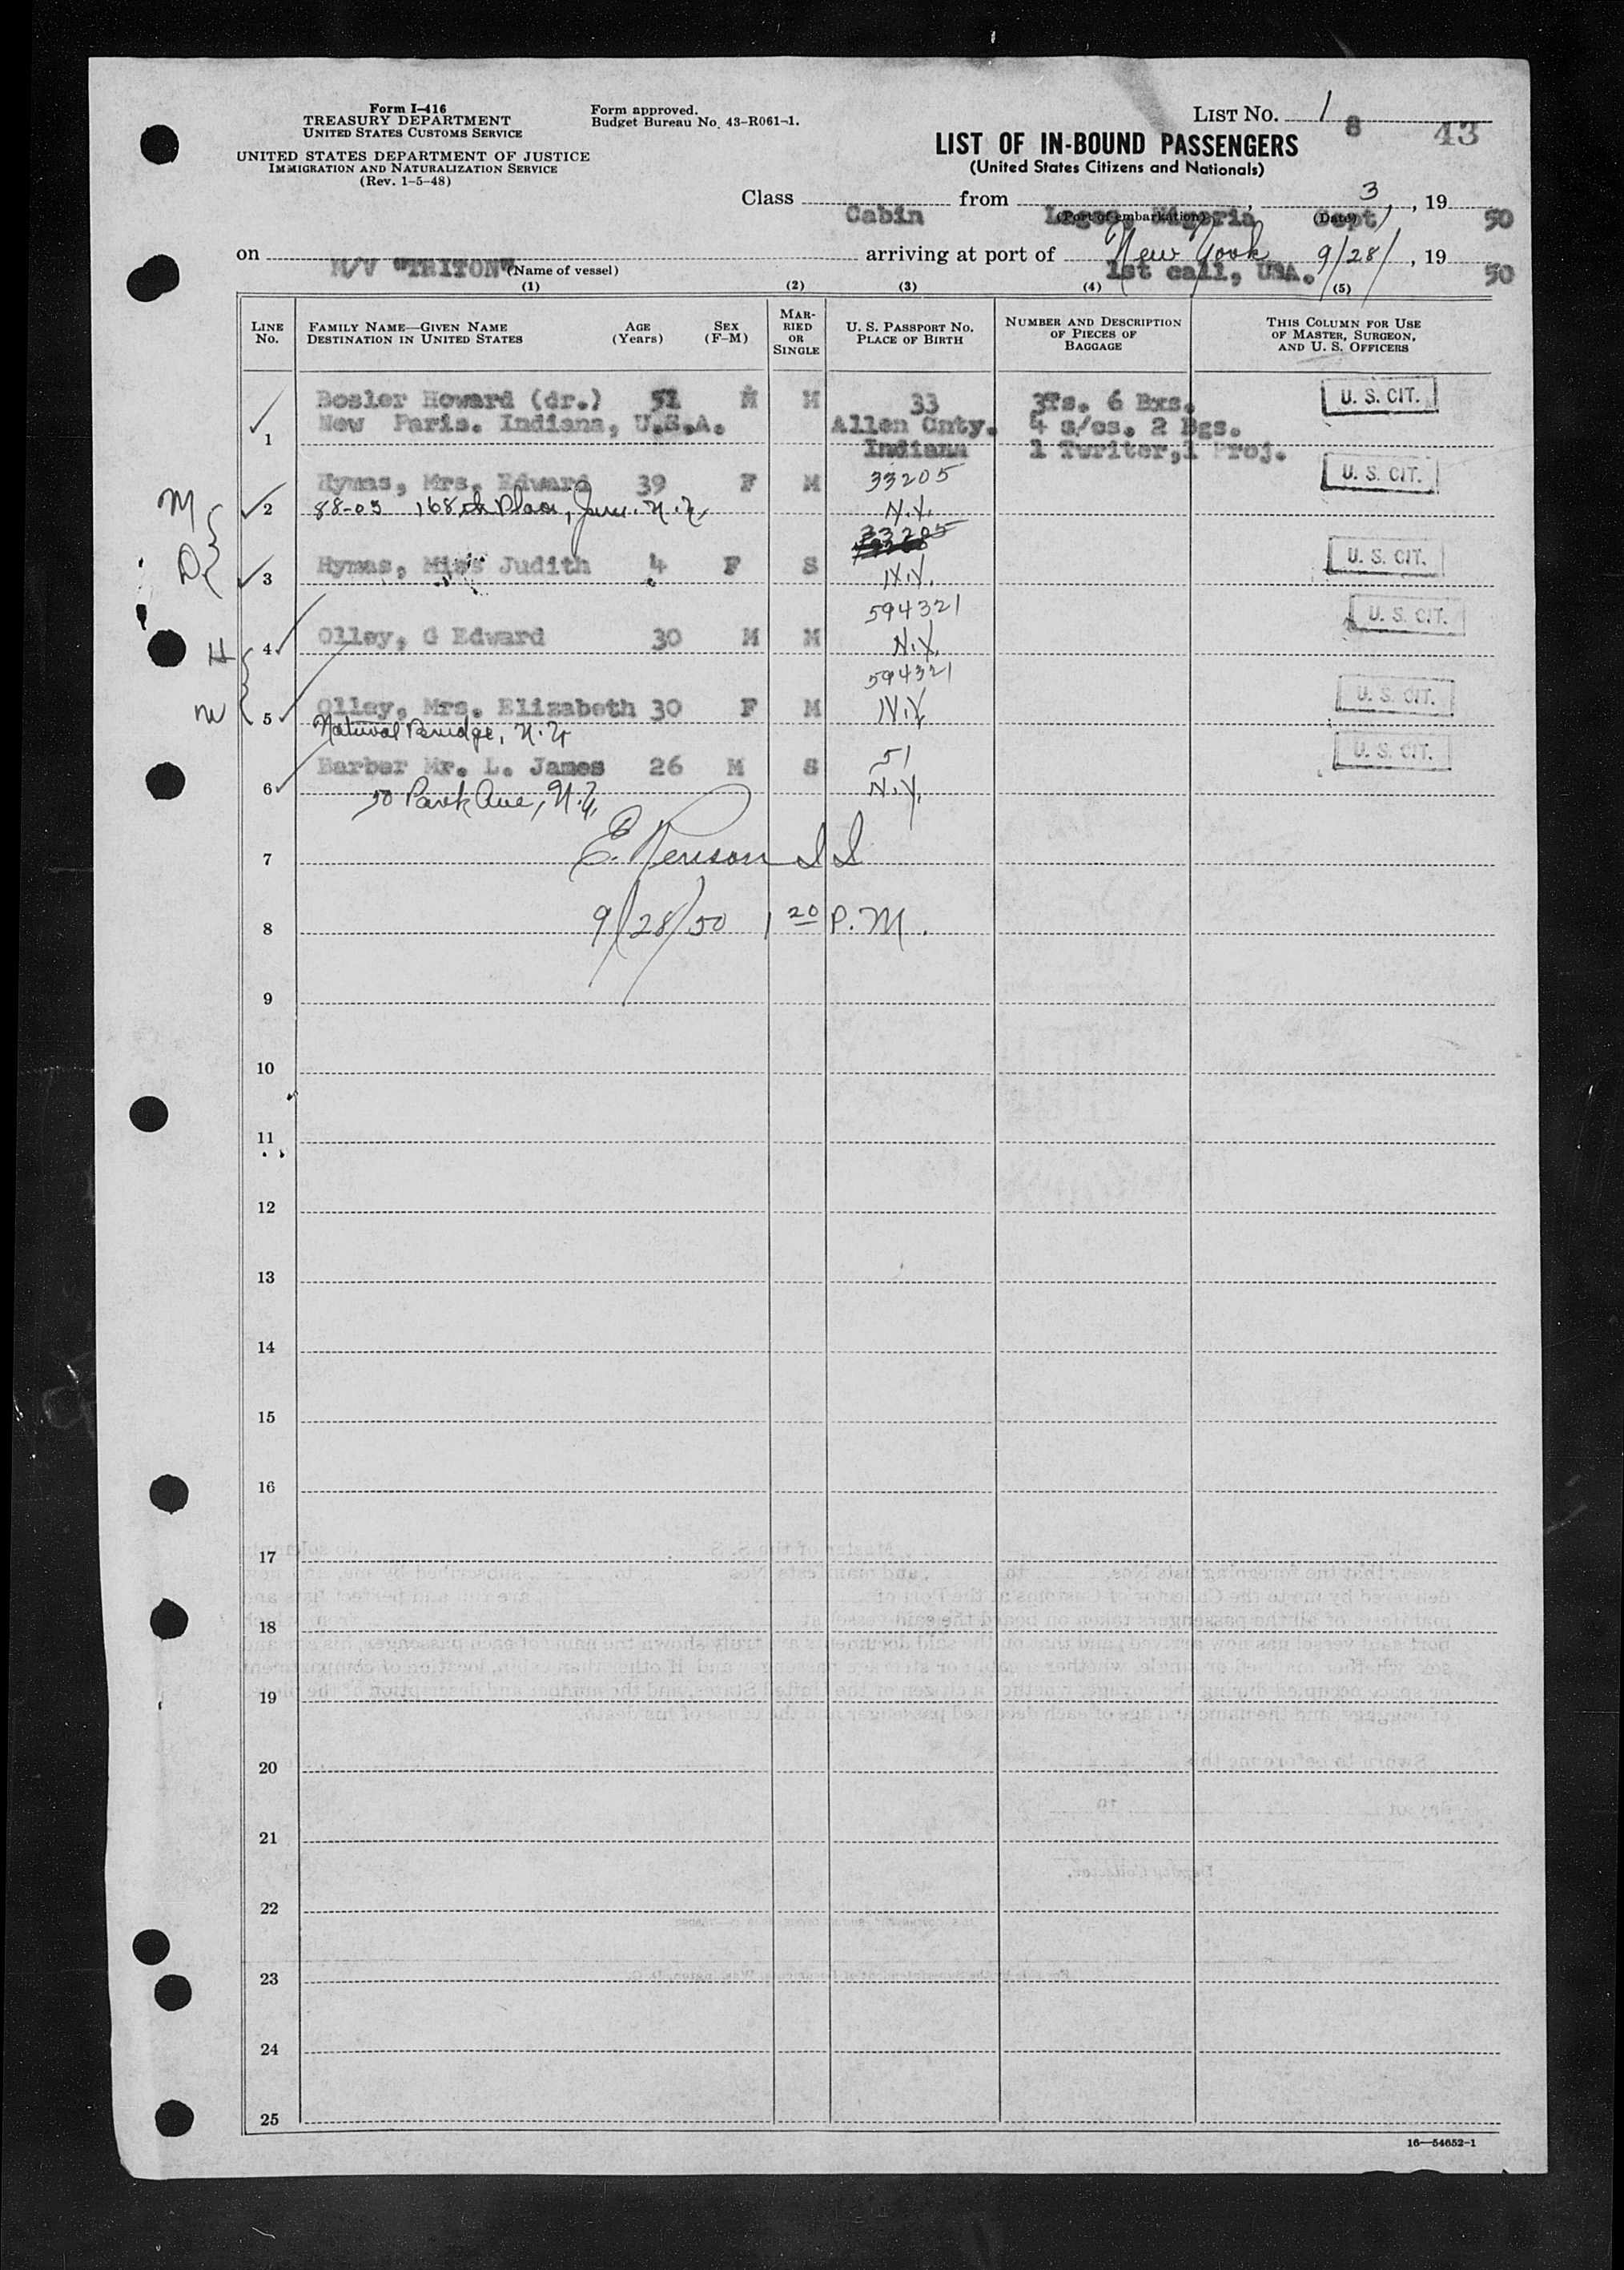 Form I-416
TREASURY DEPARTMENT
UNITED STATES CUSTOMS SERVICE
UNITED STATES DEPARTMENT OF JUSTICE
IMMIGRATION AND NATURALIZATION SERVICE
(Rev. 1-5-48)
Form approved.
Budget Bureau No. 43-R061-1.
LIST NO. 1
8 43
LIST OF IN-BOUND PASSENGERS
(United States Citizens and Nationals)
Class Cabin from Lagos, Nigeria, Sept 3, 1950
(Port of embarkation) (Date)
on M/V "TRITON" arriving at port of New York 9/28/, 1950
(Name of vessel) 1st call, USA.
(1) (2) (3) (4) (5)
LINE NO. FAMILY NAME—GIVEN NAME DESTINATION IN UNITED STATES AGE (Years) SEX (F-M) MARRIED OR SINGLE U. S. PASSPORT NO. PLACE OF BIRTH NUMBER AND DESCRIPTION OF PIECES OF BAGGAGE THIS COLUMN FOR USE OF MASTER, SURGEON, AND U. S. OFFICERS
Bosler Howard (dr.) 51 M M 33 3Ts. 6 Bxs. U. S. CIT.
1 New Paris. Indiana, U.S.A. Allen Cnty. 4 s/cs. 2 Bgs.
Indiana 1 Twriter,1 Proj.
Hymas, Mrs. Edward 39 F M 33205 U. S. CIT.
M 2 88-03 168th Place, Jam. N.Y. N.Y.
33205
D 3 Hymas, Miss Judith 4 F S N.Y. U. S. CIT.
594321
H 4 Olley, G Edward 30 M M N.Y. U. S. CIT.
594321
W 5 Olley, Mrs. Elizabeth 30 F M N.Y. U. S. CIT.
Natural Bridge, N.Y.
Barber Mr. L. James 26 M S 51 U. S. CIT.
6 50 Park Ave, N.Y. N.Y.
7 E. Renison I I
8 9/28/50 1 20 P.M.
9
10
11
12
13
14
15
16
17
18
19
20
21
22
23
24
25
16—54652-1